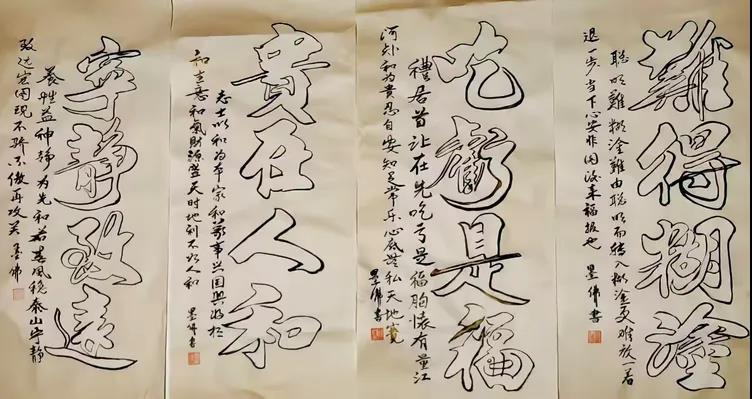 難得糊塗
聪明難糊塗難由聪明而转入糊塗更难放一着
退一步当下心安非图後来福报也
墨佛書
吃虧是福
禮居首让在先吃亏是福胸懷有量江
河外和为贵忍自安知足常乐心底無私天地寬
墨佛書
貴在人和
志士以和为本家和萬事兴国興好於
和生意和氣財源盛天时地利不如人和
墨佛書
寧靜致遠
養性益神静为先和若春風穏泰山宁静
致达宏图现不骄不傲再攻关 墨佛